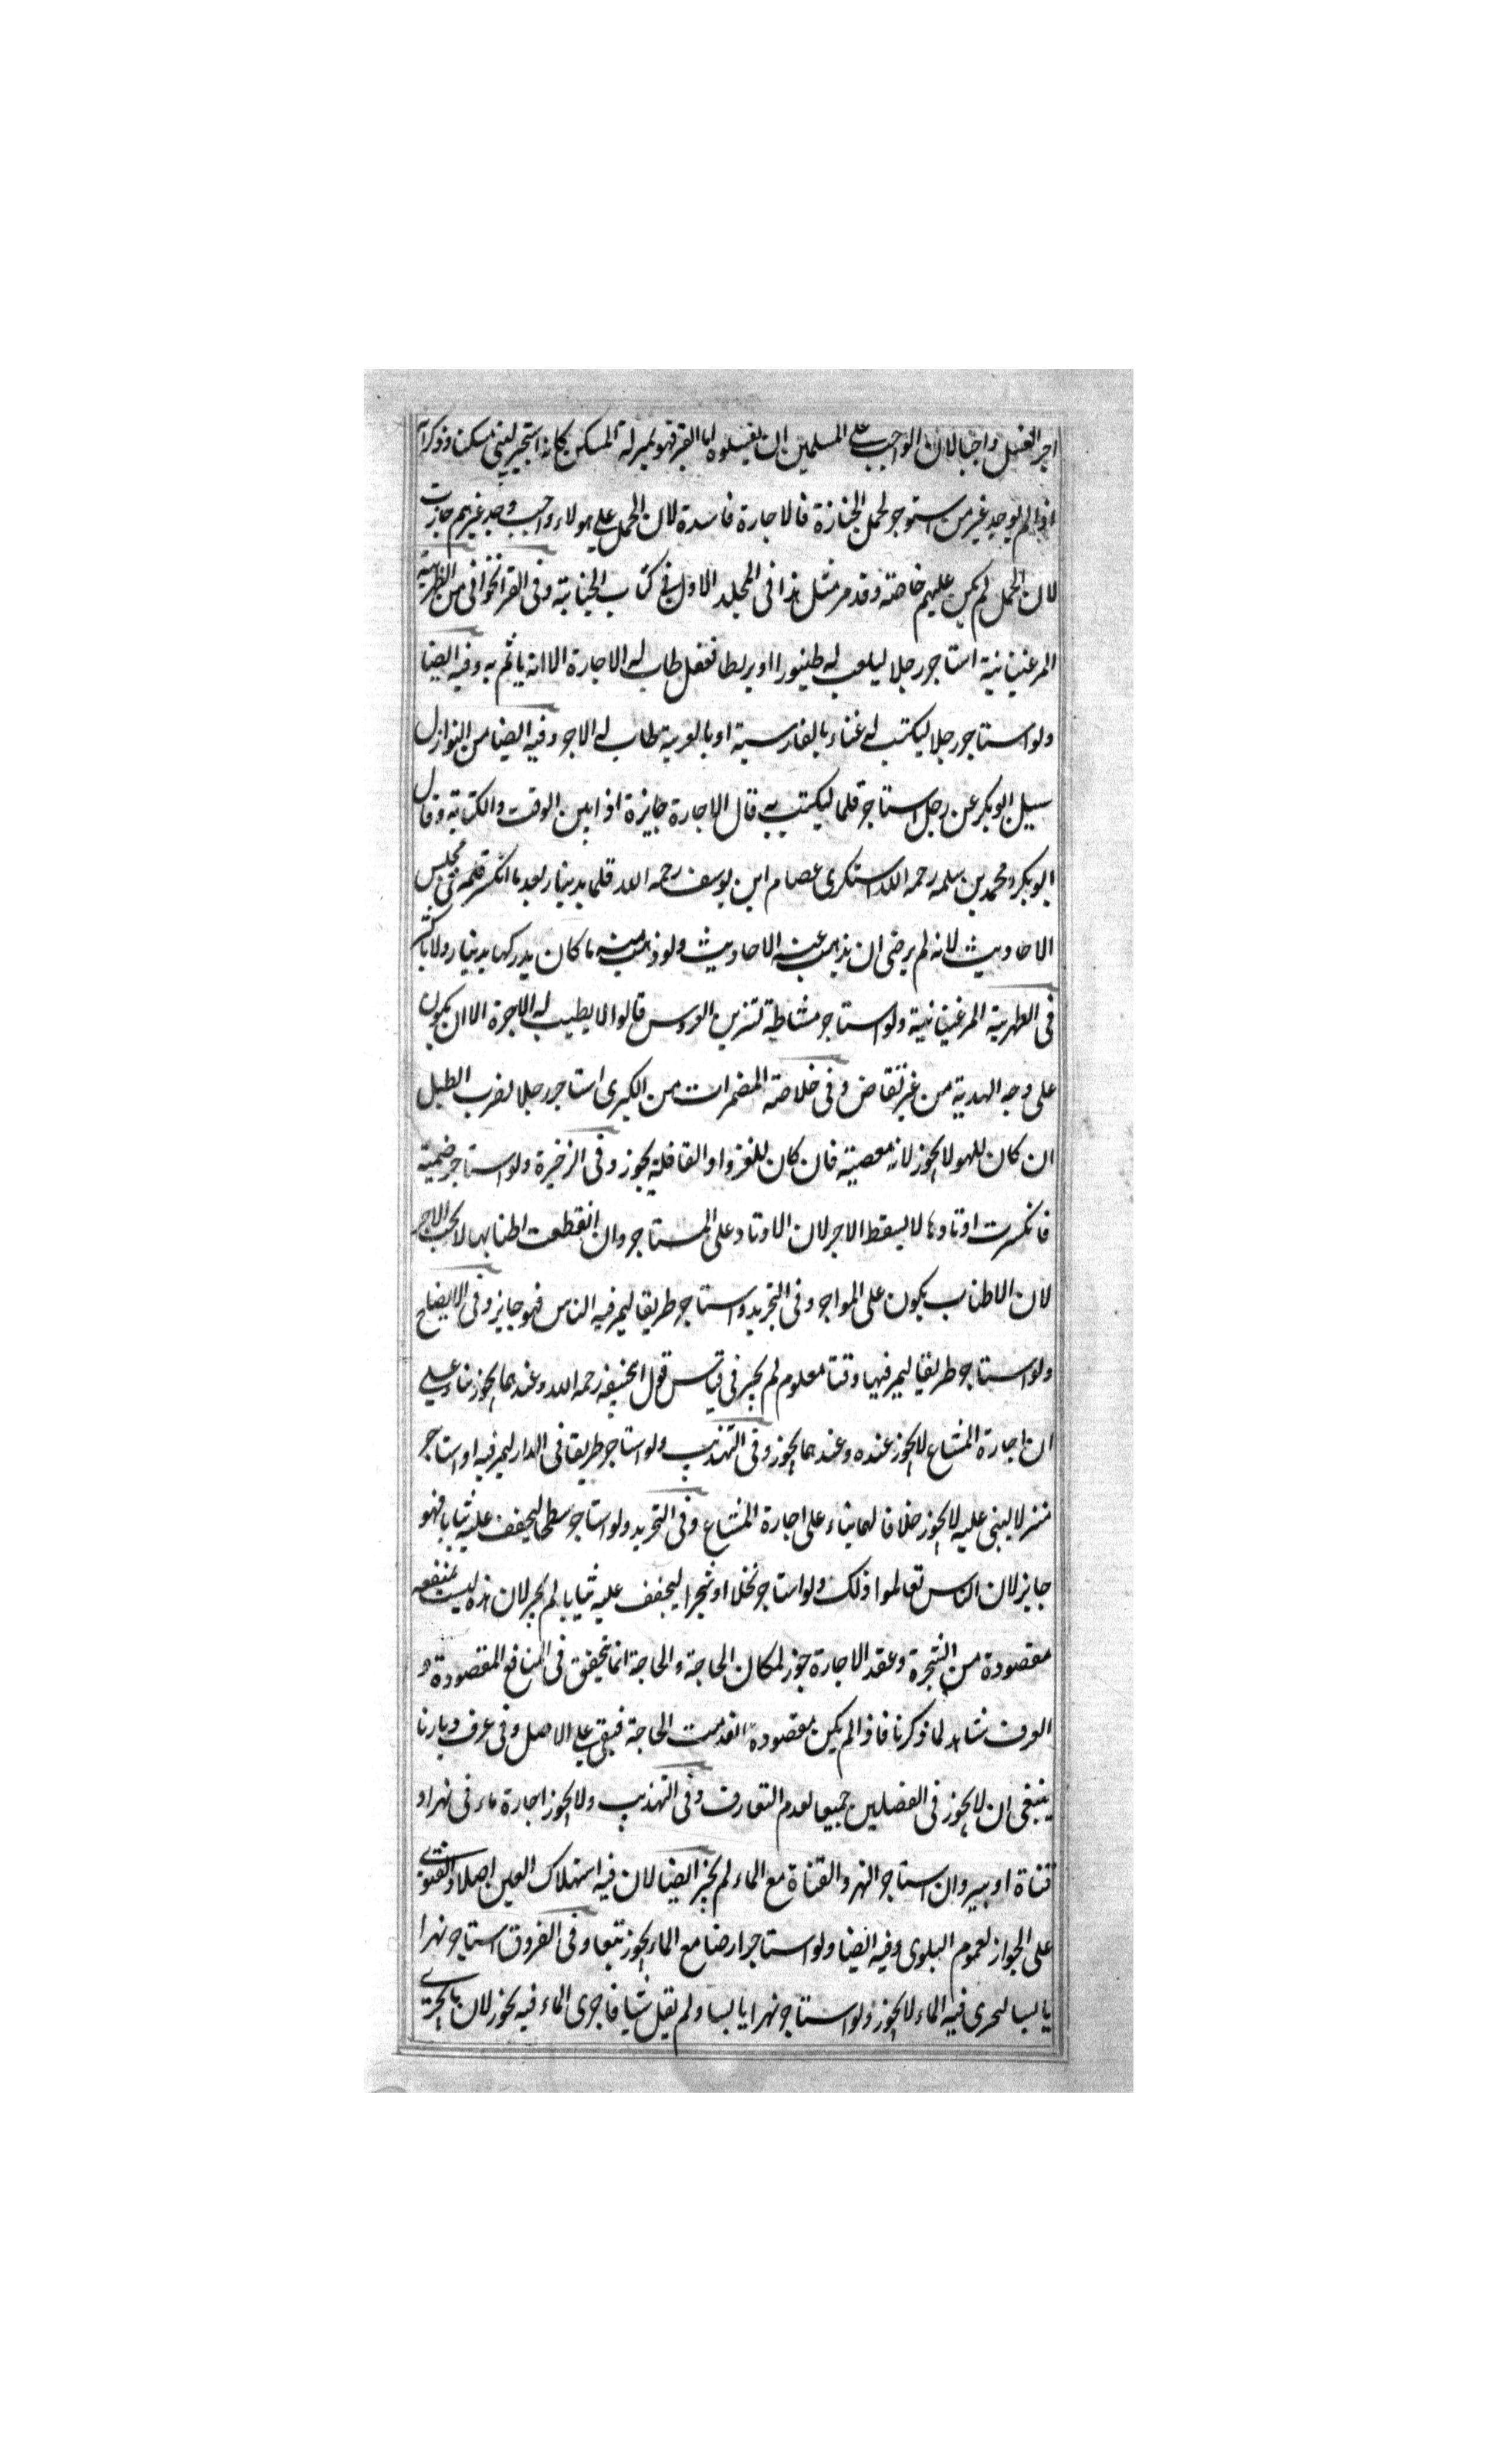 اجر الغسل واجبا لان الواجب على المسلمين ان يغسلوه اما القبر فهو بمنزلة المسكن كانه استجير ليبنى مسكنا وذكر انه
اذا لم يوجد غير من استوجر لحمل الجنازة فالاجارة فاسدة لان الحمل على هولاء واجب وجد غيرهم جازت
لان الحمل لم يكن عليهم خاصة وقد مر مثل هذا فى المجلد الاول فى كتاب الجنابة وفى القراخوانى من الظهيرية
المرغينانية استاجر رجلا ليلعب له طنبورا او بربطا ففعل طاب له الاجارة الا انه ياثم به وفيه ايضا
ولو استاجر رجلا ليكتب له غناء بالفارسية او بالعربية طاب له الاجر وفيه ايضا من النوازل
سيل ابو بكر عن رجل استاجر قلما ليكتب به قال الاجارة جايزة اذا بين الوقت والكتابة وقال
ابو بكر ومحمد بن سلمه رحمه الله استكرى عصام ابن يوسف رحمه الله قلما بدينار بعد ما انكسر قلمه فى مجلس
الاحاديث لانه لم يرضى ان يذهب عنه الاحاديث ولو ذهب منه ما كان يدركها بدينار ولا باكثر
فى الظهرية المرغينانية ولو استاجر مشاطة لتزين العروس قالوا لا يطيب له الاجرة الا ان يكون
على وجه الهدية من غير تقاض وفى خلاصة المضمرات من الكبرى استاجر رجلا لضرب الطبل
ان كان للهو لا يجوز لانه معصية فان كان للغزو او القافلة يجوز وفى الزخيرة ولو استاجر خيمة
فانكسرت اوتادها لا يسقط الاجر لان الاوتاد على المستاجر وان انقطعت اطنابها لا يجب الاجر
لان الاطناب يكون على المواجر وفى التجريد واستاجر طريقا ليمر فيه الناس فهو جايز وفى الايضاح
ولو استاجر طريقا ليمر فيها وقتا معلوم لم يجز فى قياس قول ابحنيفه رحمه الله وعندهما يجوز بناء على
ان اجارة المشاع لا يجوز عنده وعندهما يجوز وفى التهذيب ولو استاجر طريقا فى الدار ليمر فيه او استاجر
منزلا ليبنى عليه لا يجوز خلافا لهما بناء على اجارة المشاع وفى التجريد ولو استاجر سطحا ليجفف عليه ثيابا فهو
جايز لان الناس تعاملوا ذلك ولو استاجر نخلا او شجرا ليجفف عليه ثيابا لم يجز لان هذه ليست بمنفعه
مقصودة من الشجرة وعقد الاجارة جوز لمكان الحاجة والحاجة انما تتحقق فى المنافع المقصودة و
العرف شاهد لما ذكرنا فاذا لم يكن مقصودة انعدمت الحاجة فبقى على الاصل وفى عرف ديارنا
ينبغى ان لا يجوز فى الفصلين جميعا لعدم التعارف وفى التهذيب ولا يجوز اجارة ماء فى نهر او
قناة او بير وان استاجر النهر والقناة مع الماء لم يجز ايضا لان فيه استهلاك العين اصلا والفتوى
على الجواز لعموم البلوى وفيه ايضا ولو استاجر ارضا مع الماء يجوز تبعا وفى الفروق استاجر نهرا
يابسا ليجرى فيه الماء لا يجوز ولو استاجر نهرا يابسا ولم يقل شيا فاجرى الماء فيه يجوز لان